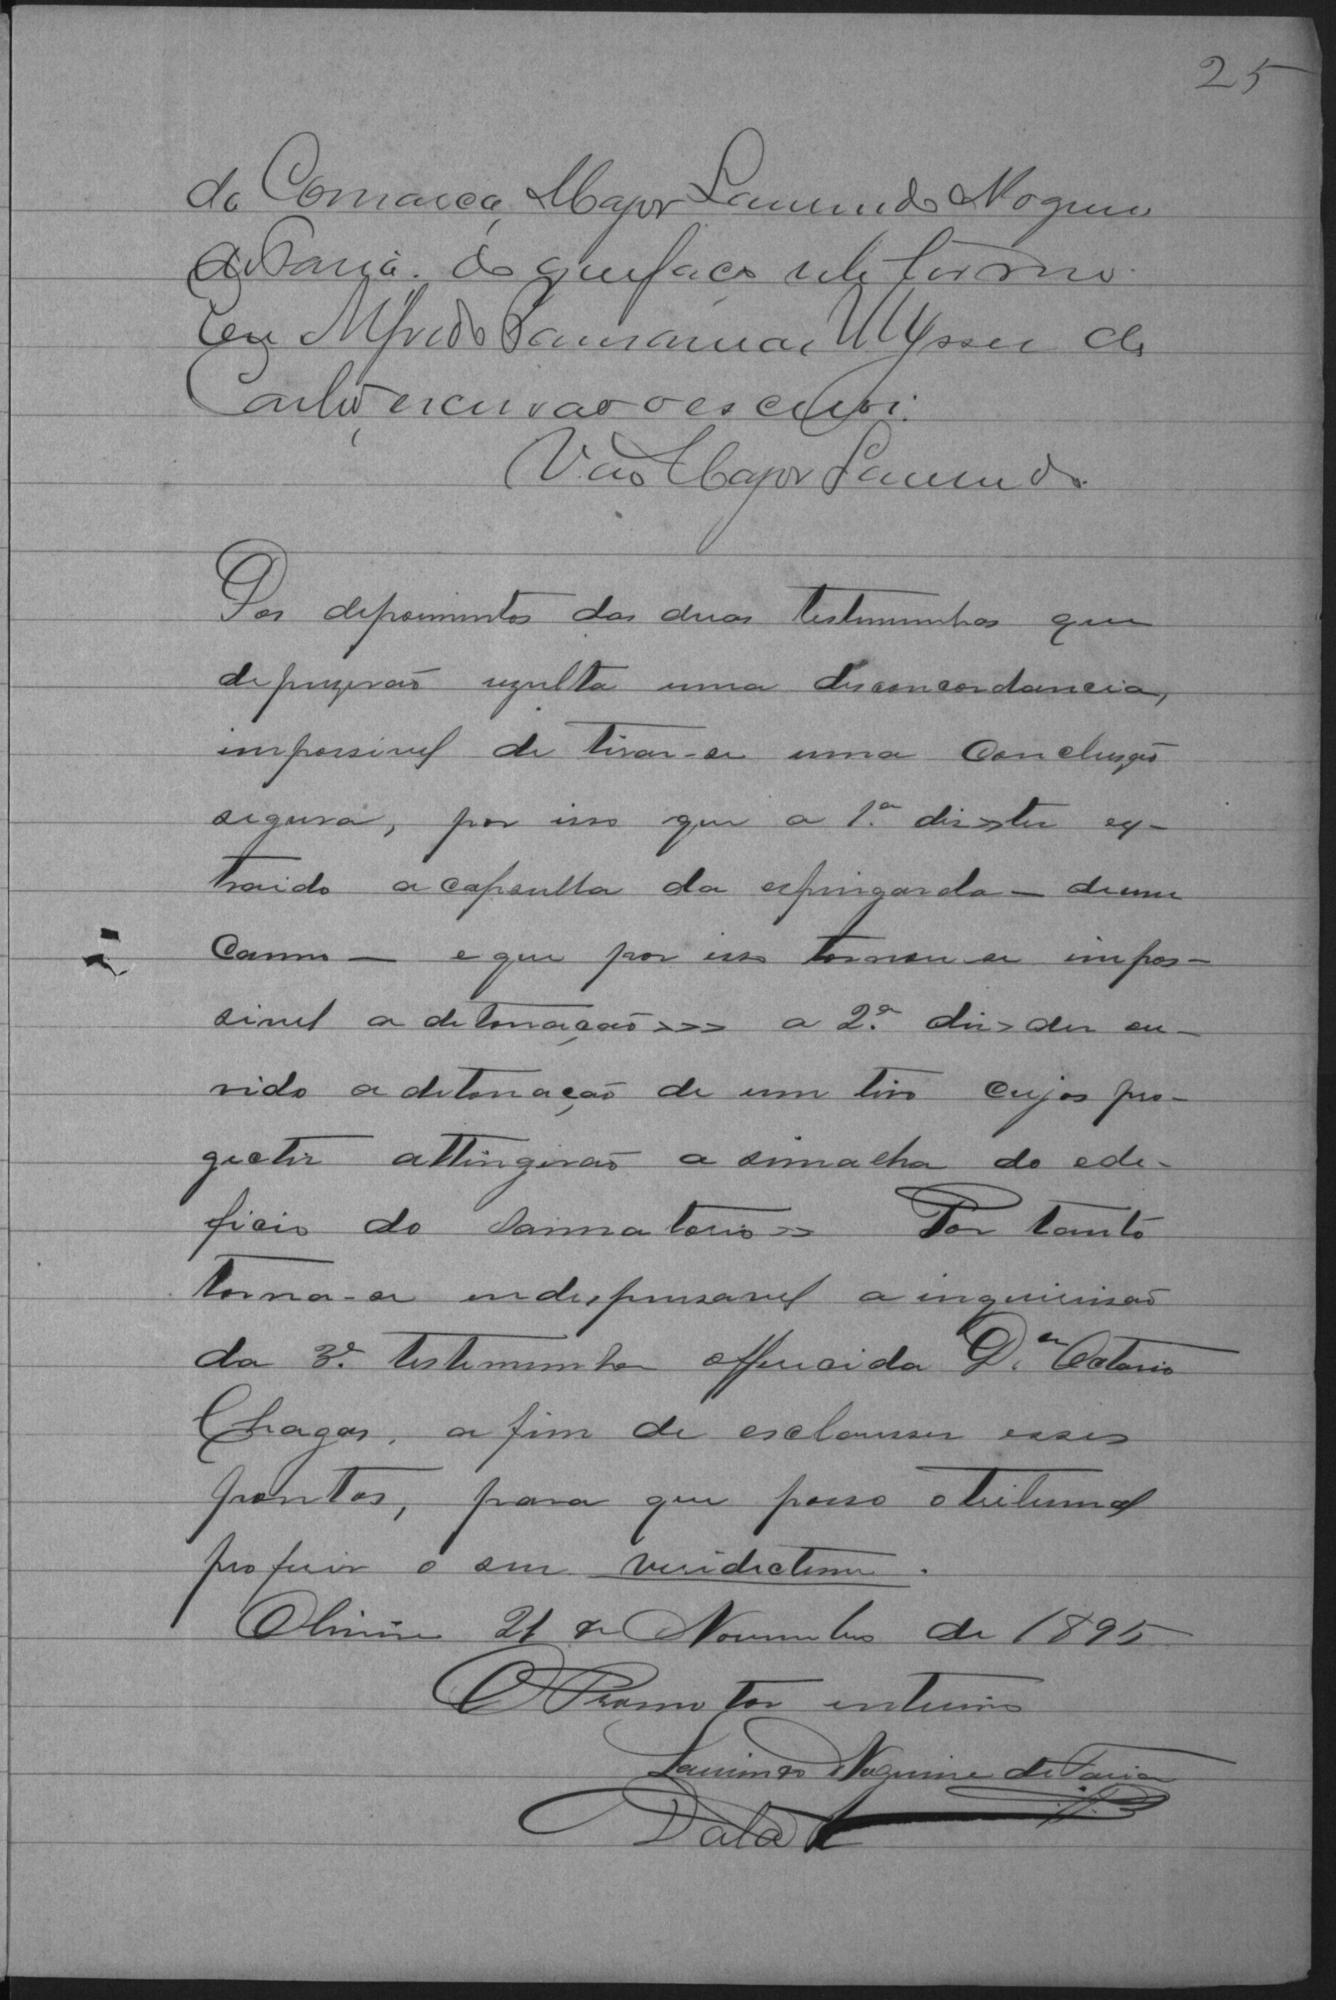 25
da Comarca, Major Laurindo Nogueira
de Faria. do que faço este termo.
Eu Alfredo Ulysses de
escrivão o escrevi.
V.ao Major Laurindo.
Dos depoimentos das duas testemunhas que
depuzerão rezulta uma disconcordancia,
impossivel de tirar-se uma conclusão
segura, por isso que a 1.ª diz > ter ex-
traido a capsulla da espingarda — de um
canno — e que por isso tornou se impos-
sivel a detonação >>> a 2.ª diz > der ou-
vido a detonação de um tiro cujos pro-
gectis attingirão a simalha do ede-
ficio do sannatorio >> Por tanto
torna-se indespensavel a inquirisão
da 3.ª testemunha offerecida D.or Octavio
Chagas, a fim de esclarisser esses
pontos, para que possa o tribunal
proferir o seu veridictum.
21 de Novembro de 1895
O Promotor interino
Laurindo Nogueira de Faria
Data